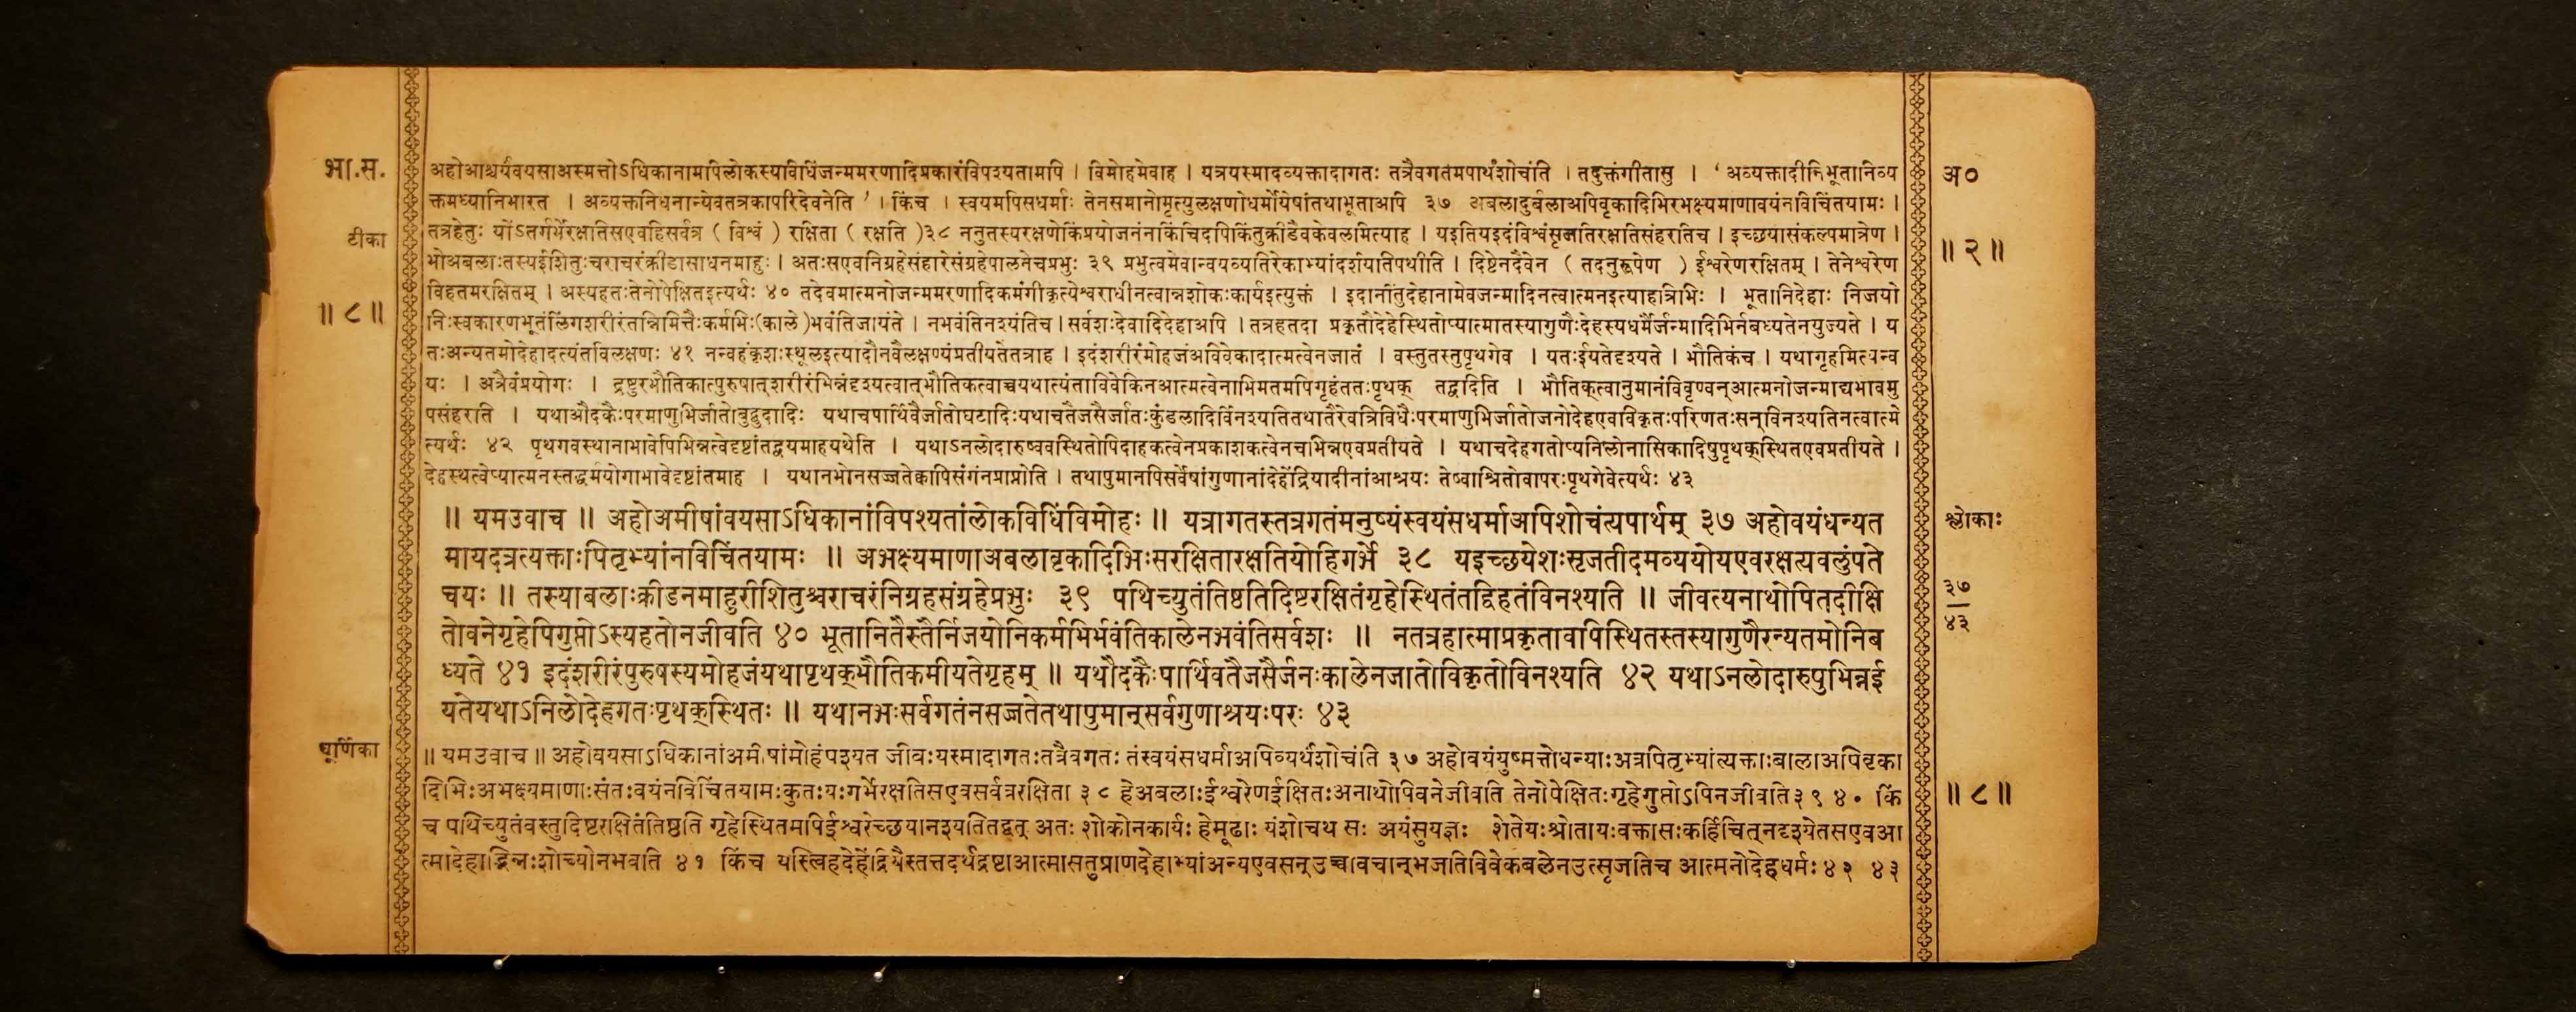 भा.स.
टीका
॥ ८ ॥
अहोआश्चर्यंवयसाअस्मत्तोऽधिकानामपिलोकस्यविधिंजन्ममरणादिप्रकारंविपश्यतामपि । विमोहमेवाह । यत्रयस्मादव्यक्तादागतः तत्रैवगतंमपार्थंशोचंति । तदुक्तंगीतासु । ‘ अव्यक्तादीनिभूतानिव्य
क्तमध्यानिभारत । अव्यक्तनिधनान्येवतत्रकापरिदेवनेति ’ । किंच । स्वयमपिसधर्माः तेनसमानोमृत्युलक्षणोधर्मोयेषांतथाभूताअपि ३७ अबलादुर्बलाअपिवृकादिभिरभक्ष्यमाणावयंनविचिंतयामः ।
तत्रहेतुः योंऽतर्गर्भेरक्षतिसएवहिसर्वत्र ( विश्वं ) रक्षिता ( रक्षति )३८ ननुतस्यरक्षणेकिंप्रयोजनंनकिंचिदपिकिंतुक्रीडैवकेवलमित्याह । यइतियइदंविश्वंसृजतिरक्षतिसंहरतिच । इच्छयासंकल्पमात्रेण ।
भोअबलाःतस्यईशितुःचराचरंक्रीडासाधनमाहुः । अतःसएवनिग्रहेसंहारेसंग्रहेपालनेचप्रभुः ३९ प्रभुत्वमेवान्वयव्यतिरेकाभ्यांदर्शयतिपथीति । दिष्टेनदैवेन ( तदनुरूपेण ) ईश्वरेणरक्षितम् । तेनेश्वरेण
विहतमरक्षितम् । अस्यहतःतेनोपेक्षितइत्यर्थः ४० तदेवमात्मनोजन्ममरणादिकमंगीकृत्येश्वराधीनत्वान्नशोकःकार्यइत्युक्तं । इदानींतुदेहानामेवजन्मादिनत्वात्मनइत्याहत्रिभिः । भूतानिदेहाः निजयो
निःस्वकारणभूतंलिंगशरीरंतन्निमित्तैःकर्मभिः(काले )भवंतिजायंते । नभवंतिनश्यंतिच । सर्वशःदेवादिदेहाअपि । तत्रहतदा प्रकृतौदेहेस्थितोप्यात्मातस्यागुणैःदेहस्यधर्मैर्जन्मादिभिर्नबध्यतेनयुज्यते । य
तःअन्यतमोदेहादत्यंतविलक्षणः ४१ नन्वहंकृशःस्थूलइत्यादौनवैलक्षण्यंप्रतीयतेतत्राह । इदंशरीरंमोहजंअविवेकादात्मत्वेनजातं । वस्तुतस्तुपृथगेव । यतःईयतेदृश्यते । भौतिकंच । यथागृहमित्यन्व
यः । अत्रैवंप्रयोगः । द्रष्टुरभौतिकात्पुरुषात्शरीरंभिन्नंदृश्यत्वात्भौतिकत्वाच्चयथात्यंताविवेकिनआत्मत्वेनाभिमतमपिगृहंततःपृथक् तद्वदिति । भौतिकत्वानुमानंविवृण्वन्आत्मनोजन्माद्यभावमु
पसंहरति । यथाऔदकैःपरमाणुभिर्जातोबुद्बुदादिः यथाचपार्थिवैर्जातोघटादिःयथाचतैजसैर्जातःकुंडलादिर्विनश्यतितथातैरेवत्रिविधैःपरमाणुभिर्जातोजनोदेहएवविकृतःपरिणतःसन्विनश्यतिनत्वात्मे
त्यर्थः ४२ पृथगवस्थानाभावेपिभिन्नत्वेदृष्टांतद्वयमाहयथेति । यथाऽनलोदारुष्ववस्थितोपिदाहकत्वेनप्रकाशकत्वेनचभिन्नएवप्रतीयते । यथाचदेहगतोप्यनिलोनासिकादिषुपृथक्स्थितएवप्रतीयते ।
देहस्थत्वेप्यात्मनस्तद्धर्मयोगाभावेदृष्टांतमाह । यथानभोनसज्जतेक्वापिसंगंनप्राप्नोति । तथापुमानपिसर्वेषांगुणानांदेहेंद्रियादीनांआश्रयः तेष्वाश्रितोवापरःपृथगेवेत्यर्थः ४३
॥ यमउवाच ॥ अहोअमीषांवयसाऽधिकानांविपश्यतांलोकविधिंविमोहः ॥ यत्रागतस्तत्रगतंमनुष्यंस्वयंसधर्माअपिशोचंत्यपार्थम् ३७ अहोवयंधन्यत
मायदत्रत्यक्ताःपितृभ्यांनविचिंतयामः ॥ अभक्ष्यमाणाअबलावृकादिभिःसरक्षितारक्षतियोहिगर्भे ३८ यइच्छयेशःसृजतीदमव्ययोयएवरक्षत्यवलुंपते
चयः ॥ तस्याबलाःक्रीडनमाहुरीशितुश्चराचरंनिग्रहसंग्रहेप्रभुः ३९ पथिच्युतंतिष्ठतिदिष्टरक्षितंगृहेस्थितंतद्विहतंविनश्यति ॥ जीवत्यनाथोपितदीक्षि
तोवनेगृहेपिगुप्तोऽस्यहतोनजीवति ४० भूतानितैस्तैर्निजयोनिकर्मभिर्भवंतिकालेनभवंतिसर्वशः ॥ नतत्रहात्माप्रकृतावपिस्थितस्तस्यागुणैरन्यतमोनिब
ध्यते ४१ इदंशरीरंपुरुषस्यमोहजंयथापृथक्भौतिकमीयतेगृहम् ॥ यथौदकैःपार्थिवतैजसैर्जनःकालेनजातोविकृतोविनश्यति ४२ यथाऽनलोदारुषुभिन्नई
यतेयथाऽनिलोदेहगतःपृथक्स्थितः ॥ यथानभःसर्वगतंनसज्जतेतथापुमान्सर्वगुणाश्रयःपरः ४३
चूर्णिका
॥ यमउवाच ॥ अहोवयसाऽधिकानांअमीषांमोहंपश्यत जीवःयस्मादागतःतत्रैवगतः तंस्वयंसधर्माअपिव्यर्थंशोचंति ३७ अहोवयंयुष्मत्तोधन्याःअत्रपितृभ्यांत्यक्ताःबालाअपिवृका
दिभिःअभक्ष्यमाणाःसंतःवयंनविचिंतयामःकुतःयःगर्भेरक्षतिसएवसर्वत्ररक्षिता ३८ हेअबलाःईश्वरेणईक्षितःअनाथोपिवनेजीवति तेनोपेक्षितःगृहेगुप्तोऽपिनजीवति३९ ४० किं
च पथिच्युतंवस्तुदिष्टरक्षितंतिष्ठति गृहेस्थितमपिईश्वरेच्छयानश्यतितद्वत् अतः शोकोनकार्यः हेमूढाः यंशोचथ सः अयंसुयज्ञः शेतेयःश्रोतायःवक्तासःकर्हिचित्नदृश्येतसएवआ
त्मादेहाद्भिन्नःशोच्योनभवति ४१ किंच यस्त्विहदेहेंद्रियैस्तत्तदर्थद्रष्टाआत्मासतुप्राणदेहाभ्यांअन्यएवसन्उच्चावचान्भजतिविवेकबलेनउत्सृजतिच आत्मनोदेहधर्मः४२ ४३
अ०
॥ २ ॥
श्लोकाः
३७
४३
॥ ८ ॥